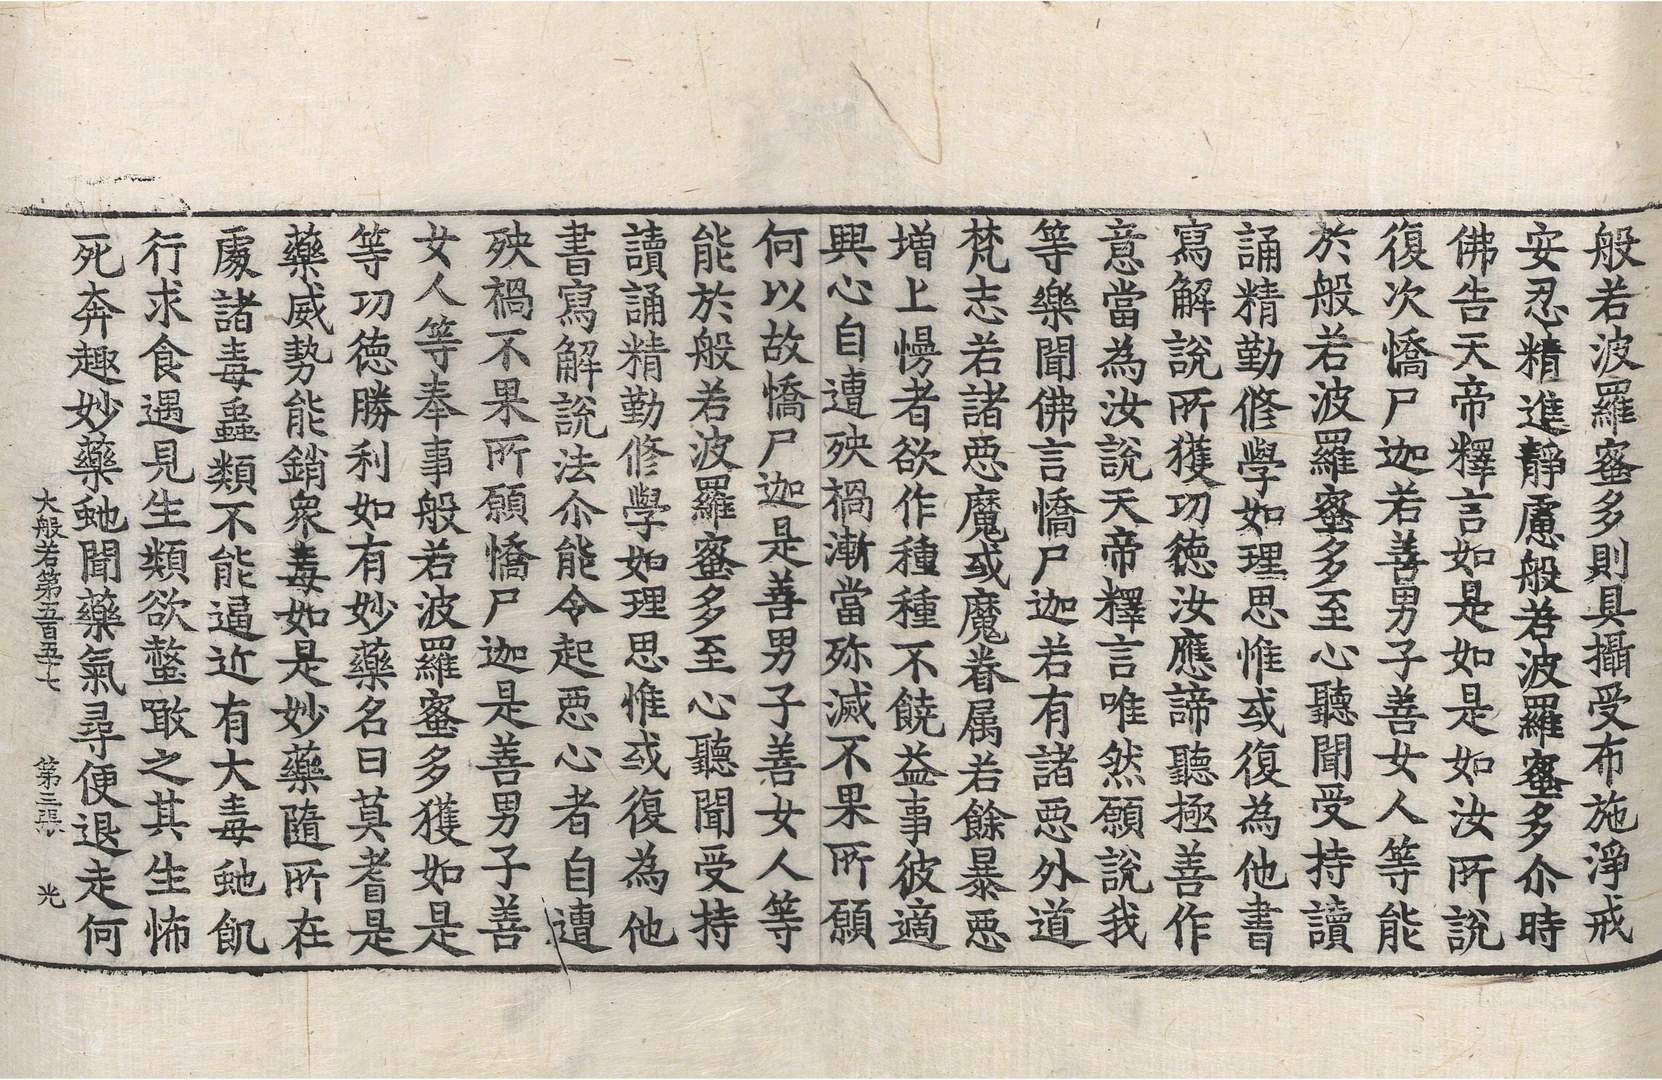 般若波羅蜜多則具攝受布施淨戒
安忍精進靜慮般若波羅蜜多尒時
佛告天帝釋言如是如是如汝所說
復次憍尸迦若善男子善女人等能
於般若波羅蜜多至心聽聞受持讀
誦精勤修學如理思惟或復為他書
寫解說所獲功德汝應諦聽極善作
意當為汝說天帝釋言唯然願說我
等樂聞佛言憍尸迦若有諸惡外道
梵志若諸惡魔或魔眷属若餘暴惡
増上慢者欲作種種不饒益事彼適
興心自遭殃禍漸當殄滅不果所願
何以故憍尸迦是善男子善女人等
能於般若波羅蜜多至心聽聞受持
讀誦精勤修學如理思惟或復為他
書寫解說法尒能令起惡心者自遭
殃禍不果所願憍尸迦是善男子善
女人等奉事般若波羅蜜多獲如是
等功德勝利如有妙藥名曰莫耆是
藥威勢能銷衆毒如是妙藥隨所在
處諸毒蟲類不能逼近有大毒虵飢
行求食遇見生類欲螫噉之其生怖
死奔趣妙藥虵聞藥氣尋便退走何
大般若第五百五十七 第三張 光